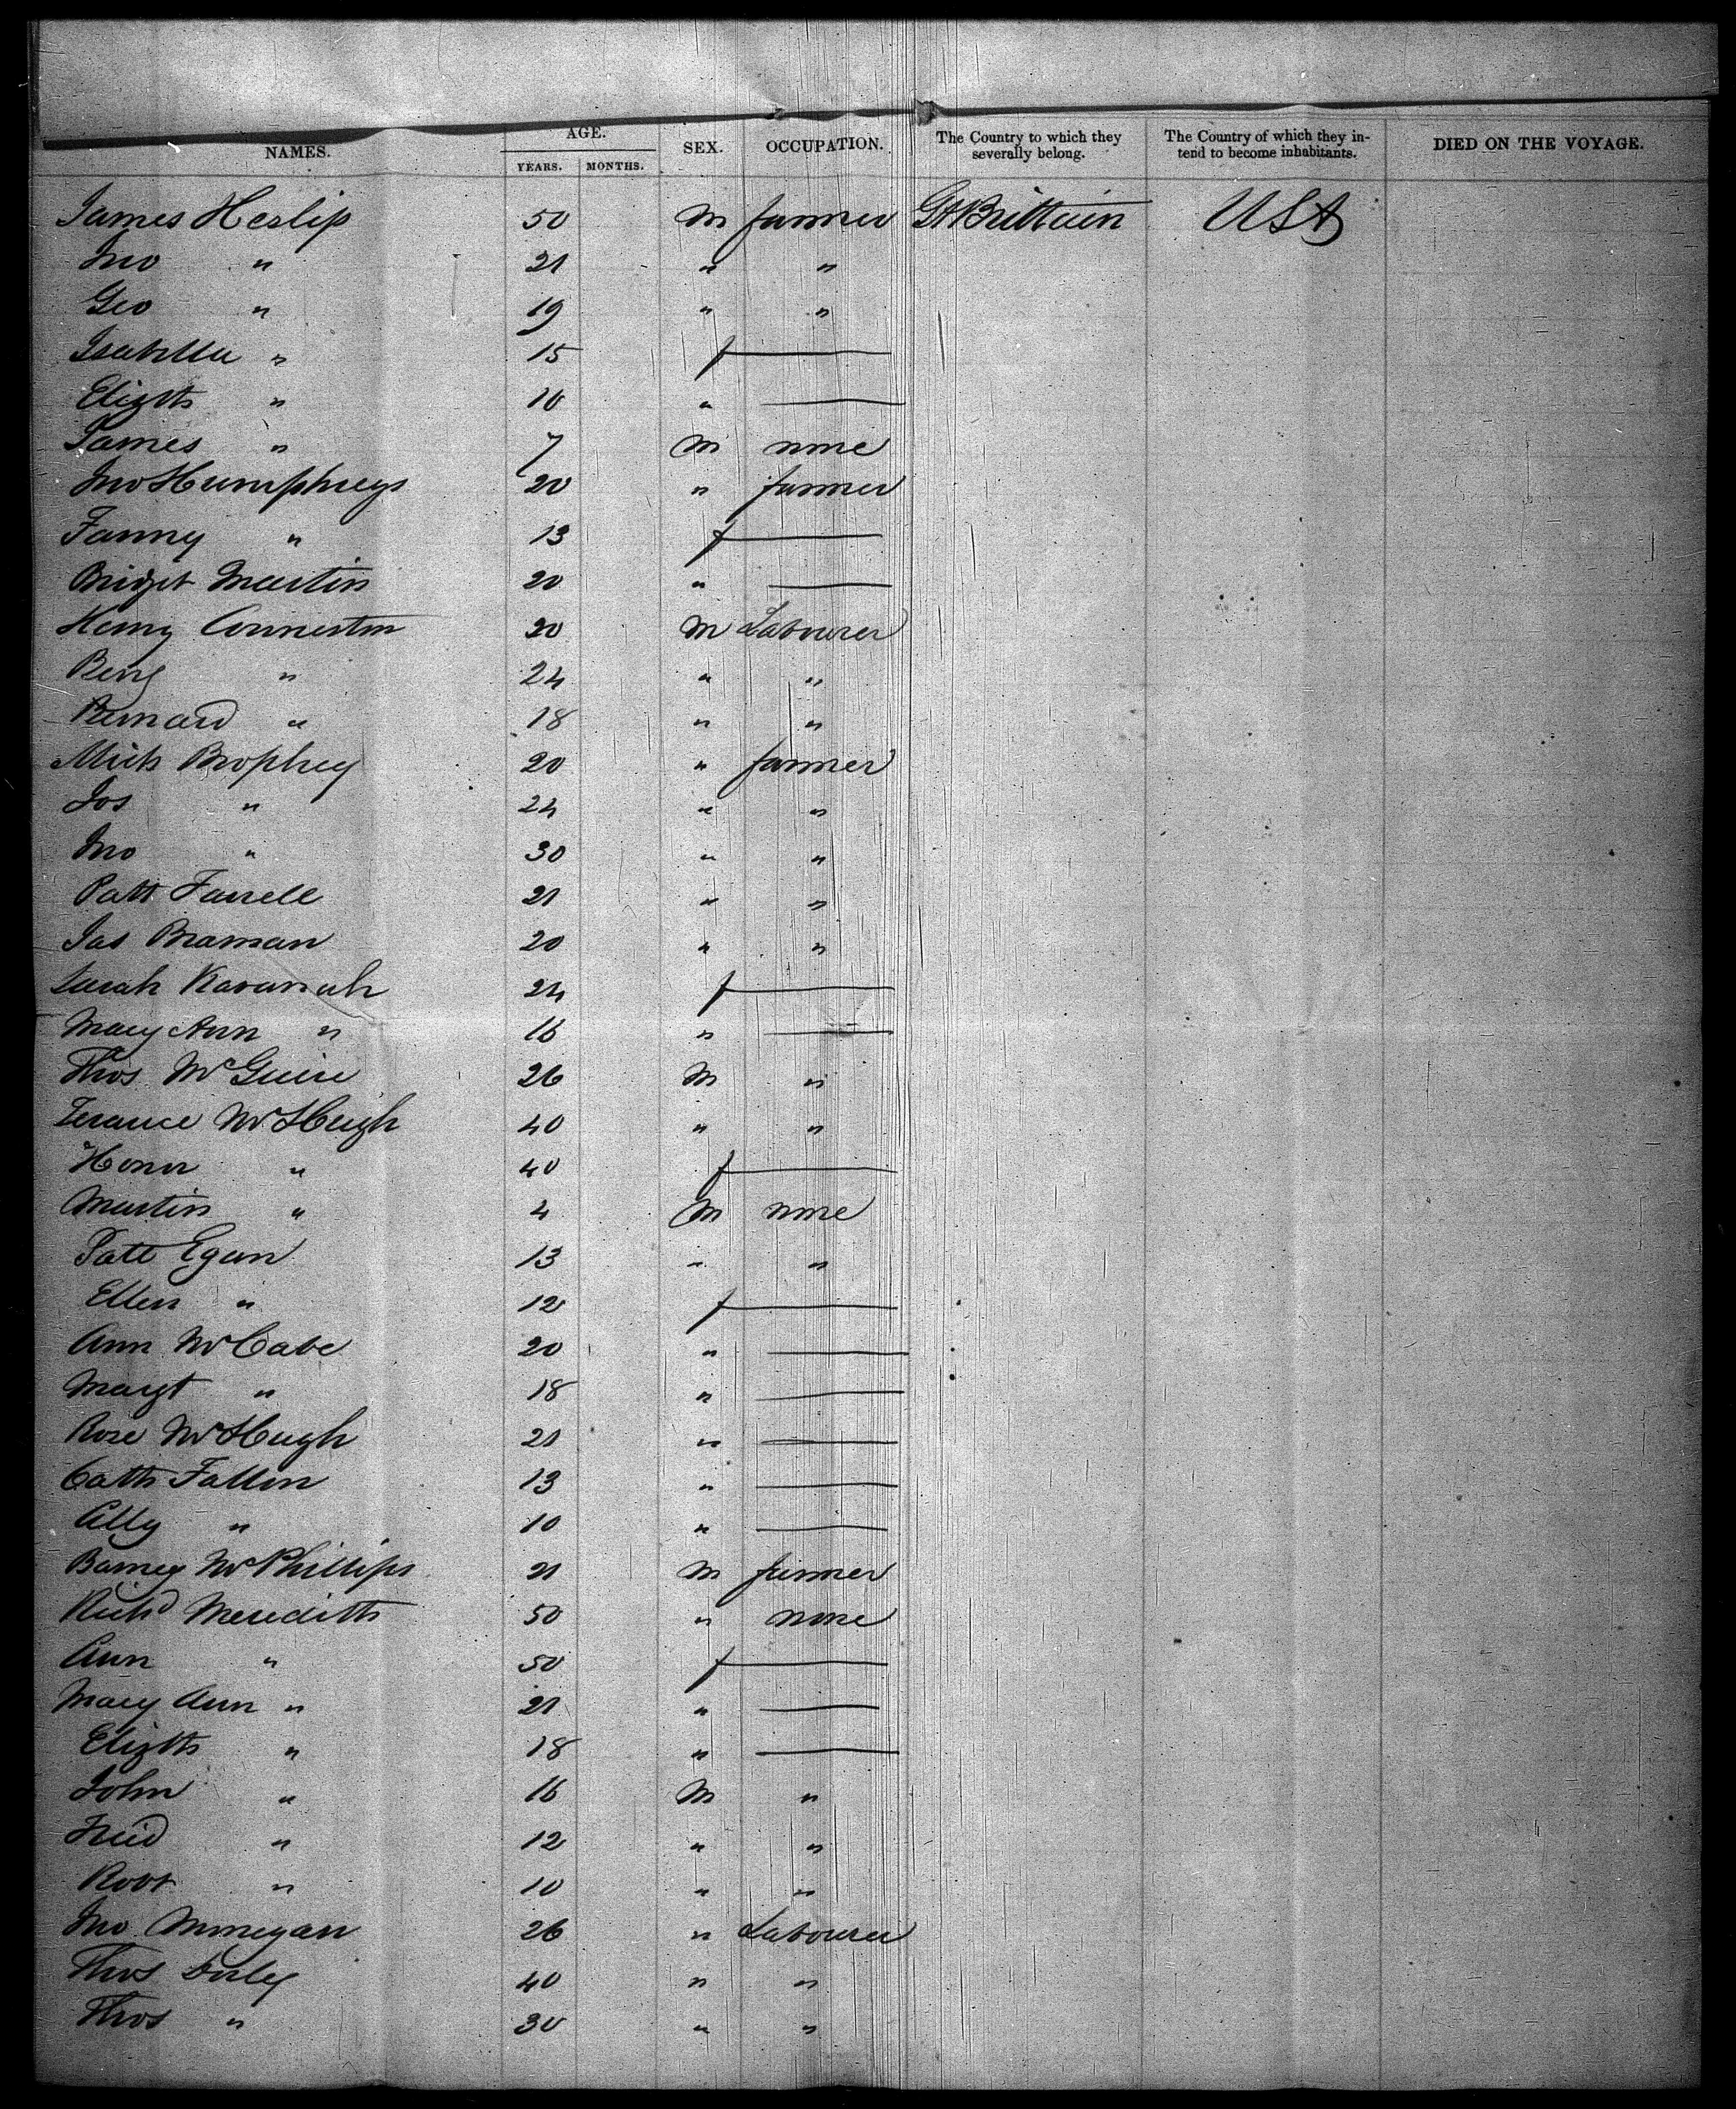 NAMES. AGE. YEARS. MONTHS. SEX. OCCUPATION. The Country to which they severally belong. The Country of which they intend to become inhabitants. DIED ON THE VOYAGE.
James Heslip 50 m farmer Gt Brittain USA
Jno " 21 " "
Geo " 19 " "
Isabella " 15 f —
Elizth " 10 " —
James " 7 m none
Jno Humphreys 20 " farmer
Fanny " 13 f —
Bridget Martin 20 " —
Henry 20 m Labourer
Benj " 24 " "
Bernard " 18 " "
Mich Brophey 20 " farmer
Jos " 24 " "
Jno " 30 " "
Patt Farrell 21 " "
Jas Braman 20 " "
Sarah Kavanah 24 f —
Mary Ann " 16 " —
Thos McGuire 26 m "
Terance McHugh 40 " "
Honor " 40 f —
Martin " 4 m none
Patt Egan 13 " "
Ellen " 12 f —
Ann McCabe 20 " —
Margt " 18 " —
Rose McHugh 21 " —
Cath Fallon 13 " —
Ally " 10 " —
Barney McPhillips 21 m farmer
Richd Meredith 50 " none
Ann " 50 f —
Mary Ann " 21 " —
Elizth " 18 " —
John " 16 m "
" 12 " "
Robt " 10 " "
Jno 26 " Labourer
Thos 40 " "
Thos " 30 " "